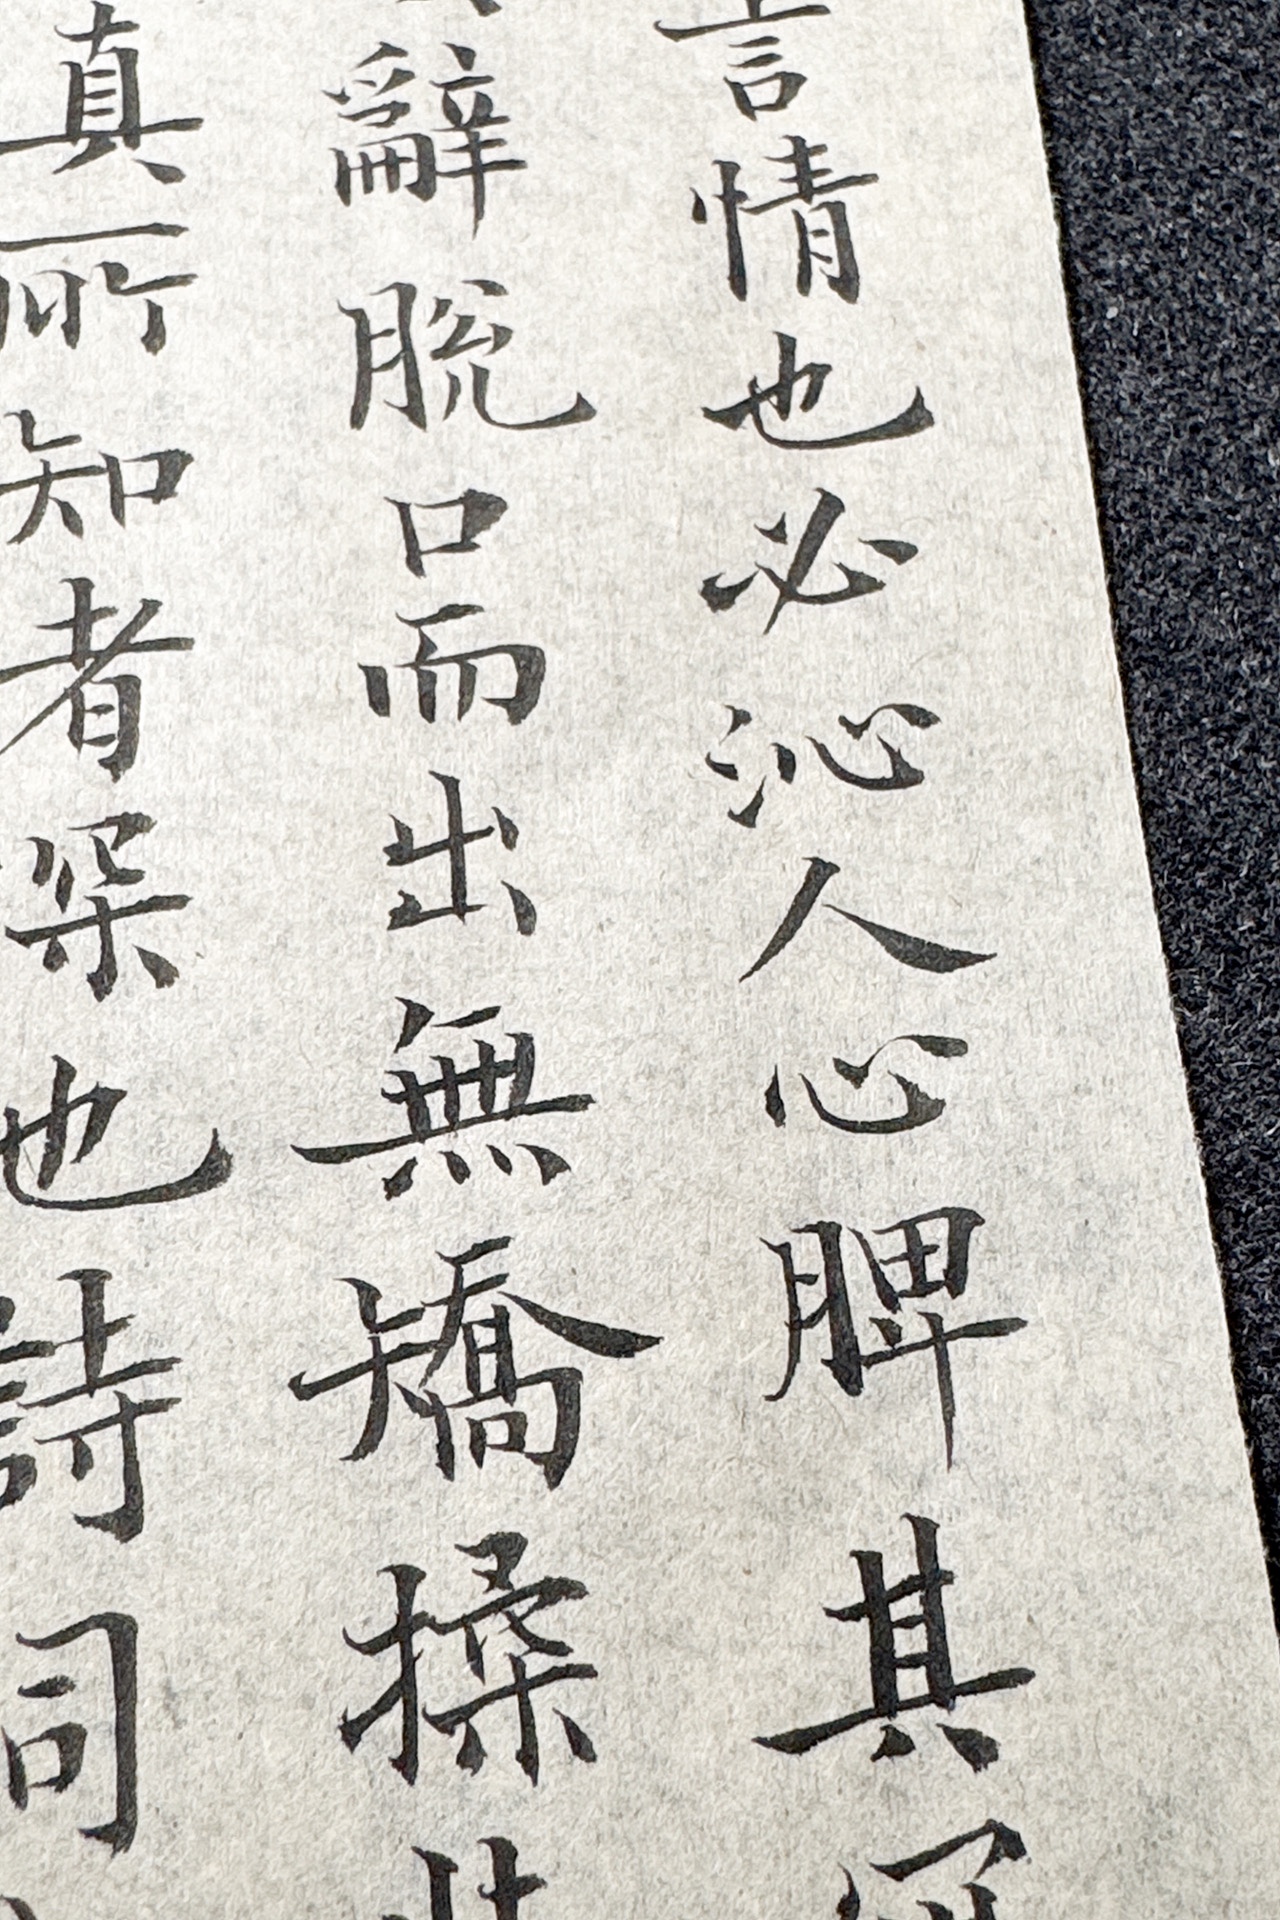 言情也必沁人心脾其寫
辭脫口而出無矯揉
真所知者深也詩詞